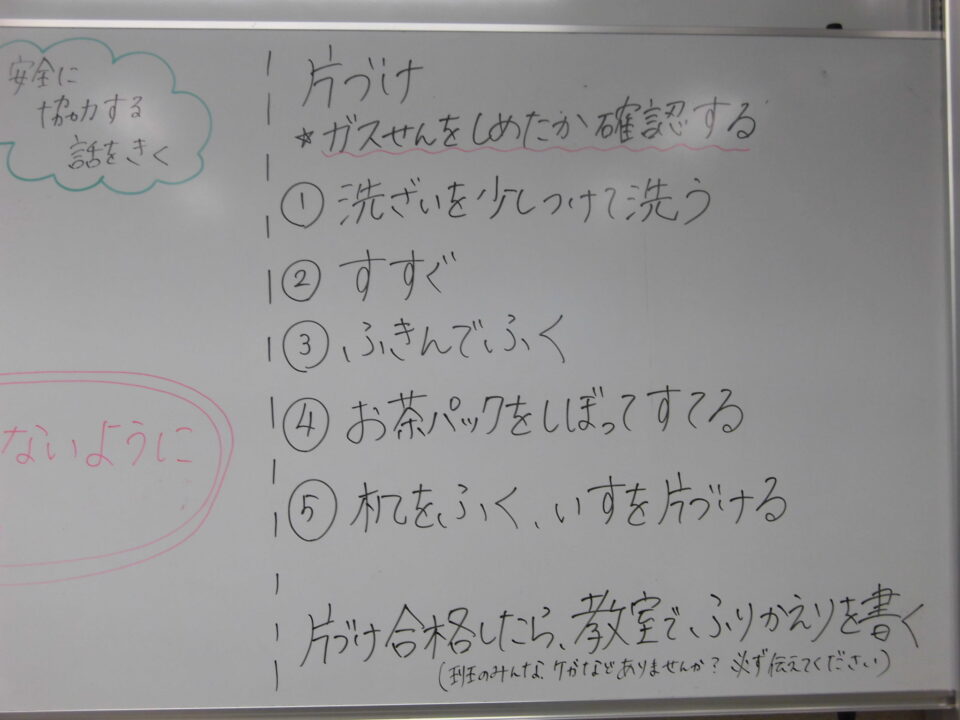 安全に
協力する
話をきく
ないように
片づけ
☆ガスせんをしめたか確認する
① 洗ざいを少しつけて洗う
② すすぐ
③ ふきんでふく
④ お茶パックをしぼってすてる
⑤ 机をふく、いすを片づける
片づけ合格したら、教室で、ふりかえりを書く
(班のみんな、ケガなどありませんか？必ず伝えてください)